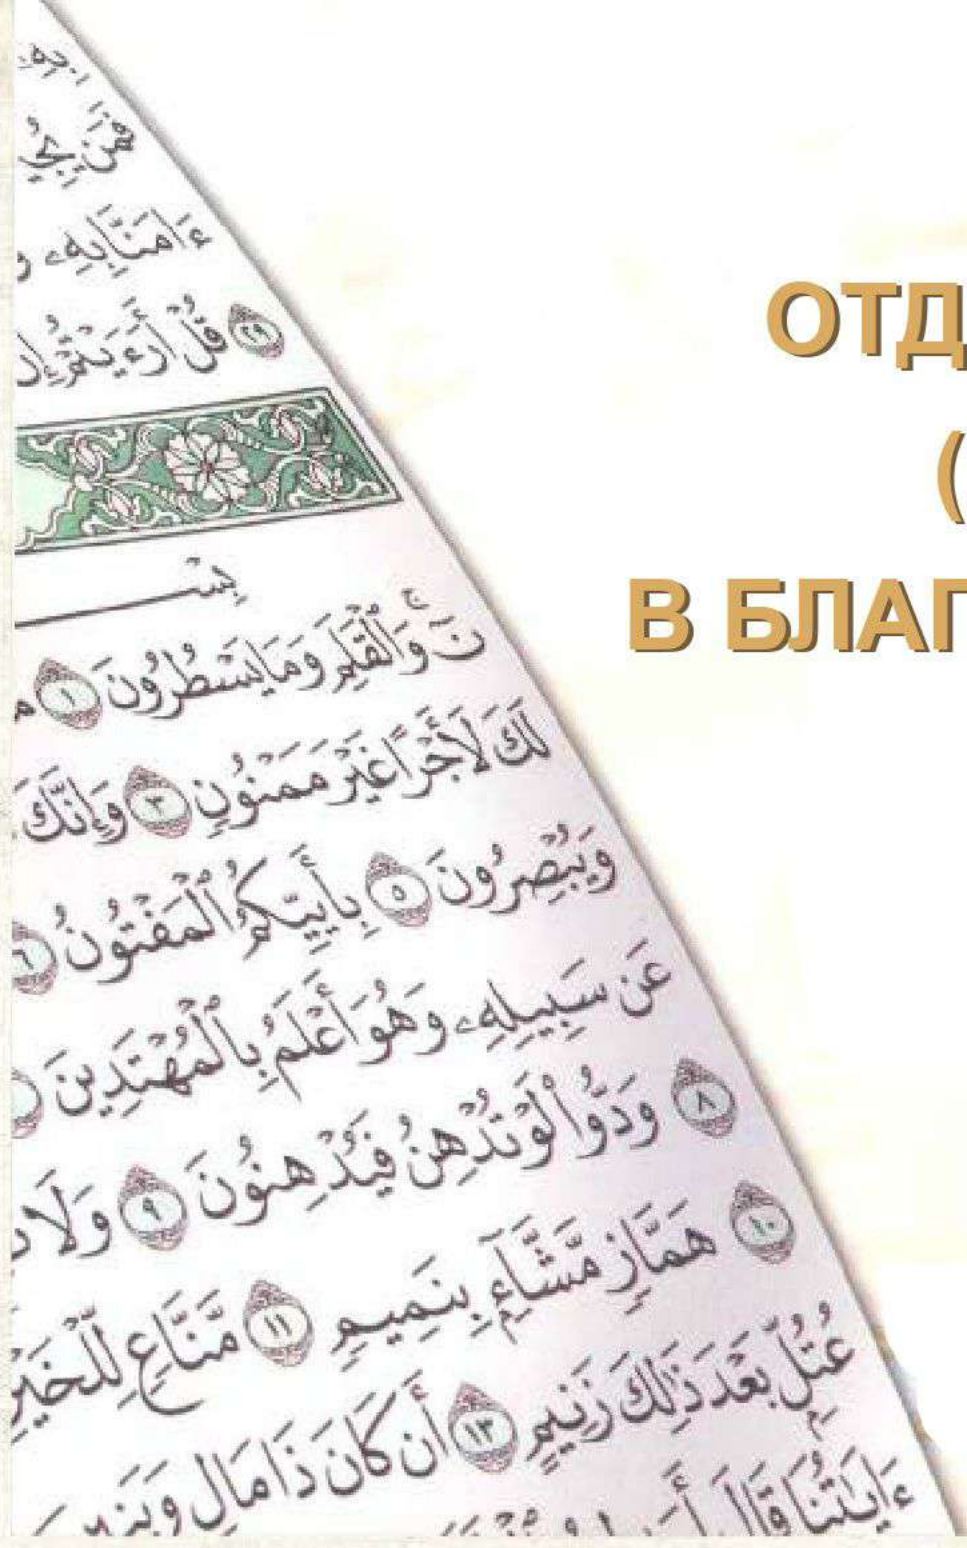 ءَامَنَّا بِهِۦ و
٢٩ قُلْ أَرَءَيْتُمْ إِن
بِسْـ
نٓ ۚ وَٱلْقَلَمِ وَمَا يَسْطُرُونَ ١ م
لَكَ لَأَجْرًا غَيْرَ مَمْنُونٍ ٣ وَإِنَّكَ
وَيُبْصِرُونَ ٥ بِأَييِّكُمُ ٱلْمَفْتُونُ ٦
عَن سَبِيلِهِۦ وَهُوَ أَعْلَمُ بِٱلْمُهْتَدِينَ
٨ وَدُّوا۟ لَوْ تُدْهِنُ فَيُدْهِنُونَ ٩ وَلَا
١٠ هَمَّازٍ مَّشَّآءٍۭ بِنَمِيمٍ ١١ مَّنَّاعٍ لِّلْخَيْرِ
عُتُلٍّۭ بَعْدَ ذَٰلِكَ زَنِيمٍ ١٣ أَن كَانَ ذَا مَالٍ وَبَنِينَ
ءَايَٰتُنَا قَالَ
ОТД
(
В БЛАГ